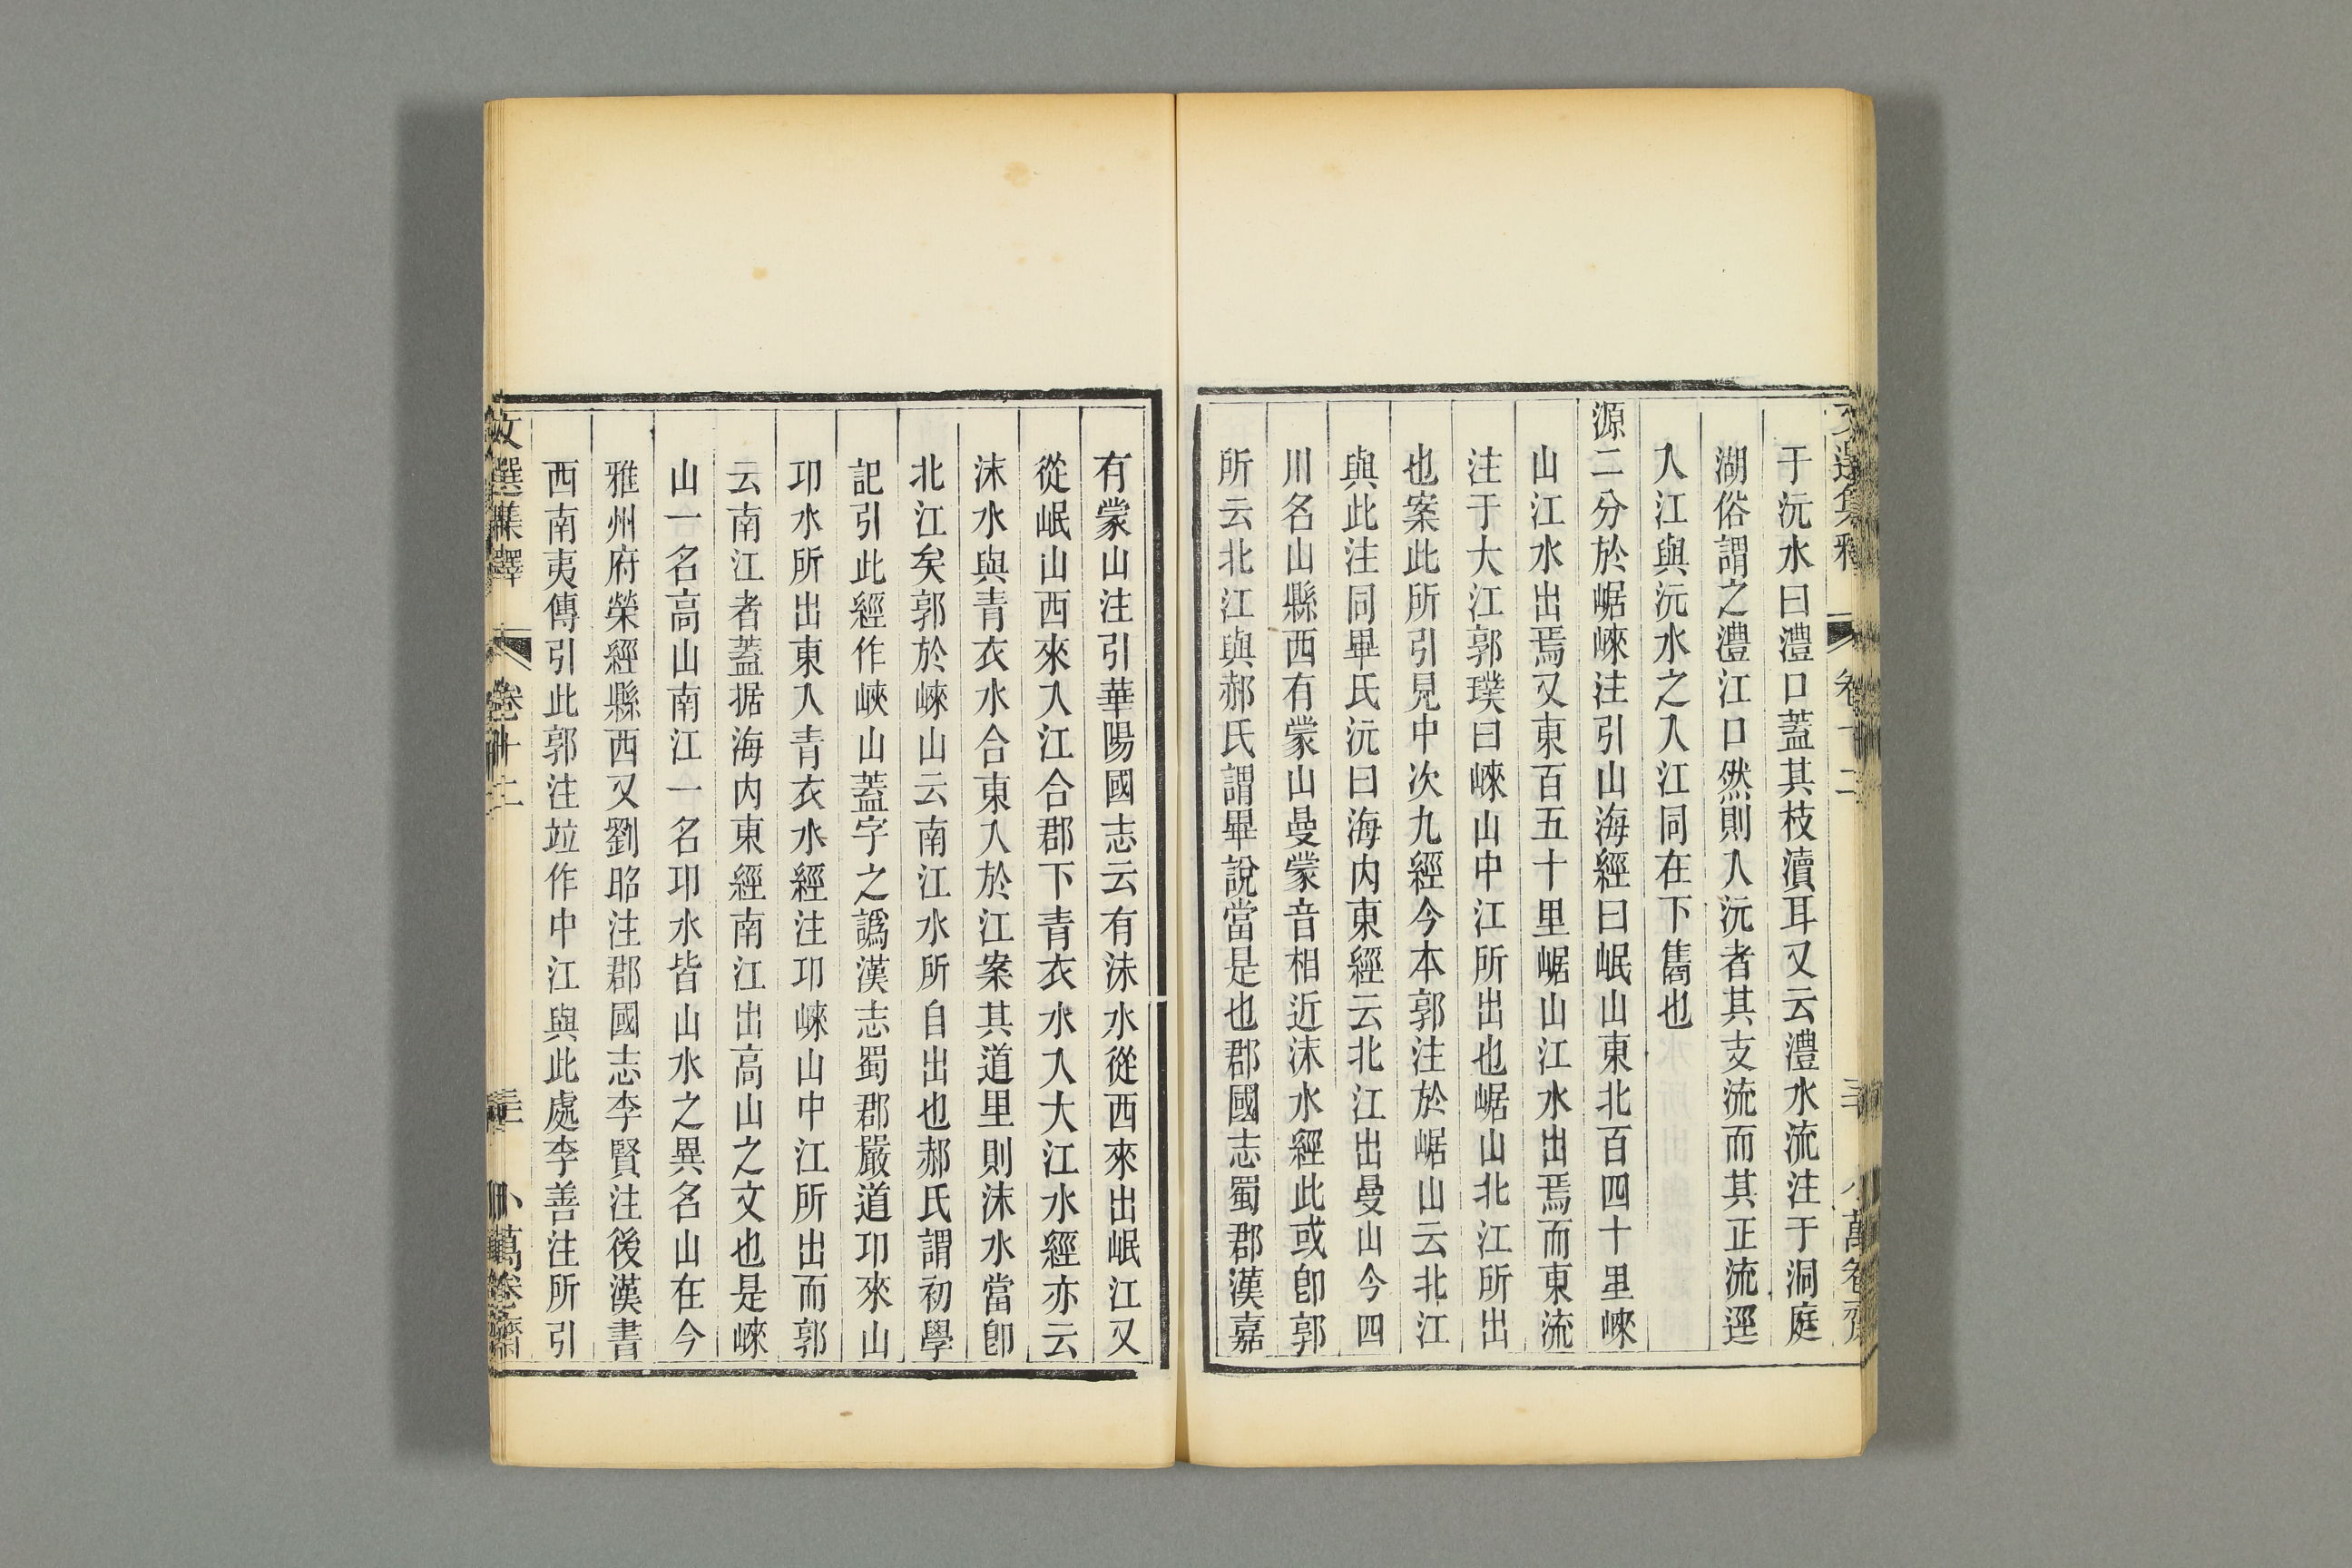 文選集釋 卷十二 小萬卷齋
于沅水曰澧口蓋其枝瀆耳又云澧水流注于洞庭
湖俗謂之澧江口然則入沅者其支流而其正流逕
入江與沅水之入江同在下雋也
源二分於崌崍注引山海經曰岷山東北百四十里崍
山江水出焉又東百五十里崌山江水出焉而東流
注于大江郭璞曰崍山中江所出也崌山北江所出
也案此所引見中次九經今本郭注於崌山云北江
與此注同畢氏沅曰海内東經云北江出曼山今四
川名山縣西有蒙山曼蒙音相近沫水經此或卽郭
所云北江與郝氏謂畢說當是也郡國志蜀郡漢嘉
有蒙山注引華陽國志云有沫水從西來出岷江又
從岷山西來入江合郡下青衣水入大江水經亦云
沫水與青衣水合東入於江案其道里則沫水當卽
北江矣郭於崍山云南江水所自出也郝氏謂初學
記引此經作峽山蓋字之譌漢志蜀郡嚴道邛來山
邛水所出東入青衣水經注邛崍山中江所出而郭
云南江者蓋据海内東經南江出高山之文也是崍
山一名高山南江一名邛水皆山水之異名山在今
雅州府榮經縣西又劉昭注郡國志李賢注後漢書
西南夷傳引此郭注竝作中江與此處李善注所引
文選集釋 卷十二 小萬卷齋